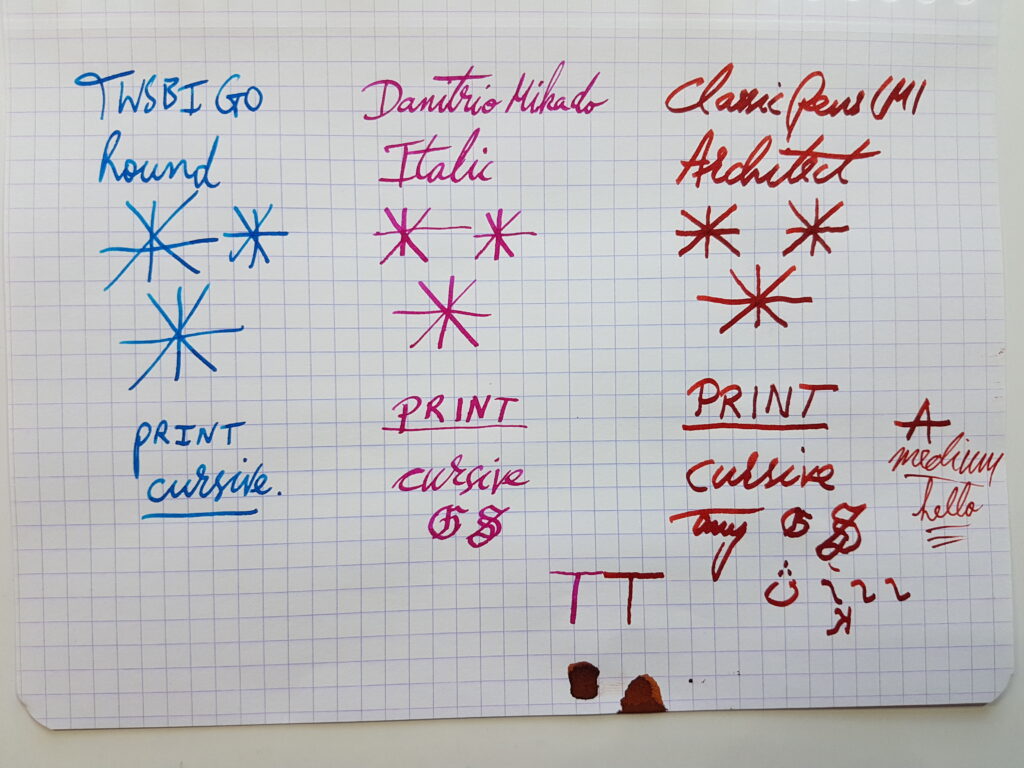 TWSBI GO
Round
PRINT
cursive.
Danitrio Mikado
Italic
PRINT
cursive
G S
Classic Pens LM1
Architect
PRINT
cursive
G S
A
medium
hello
T T